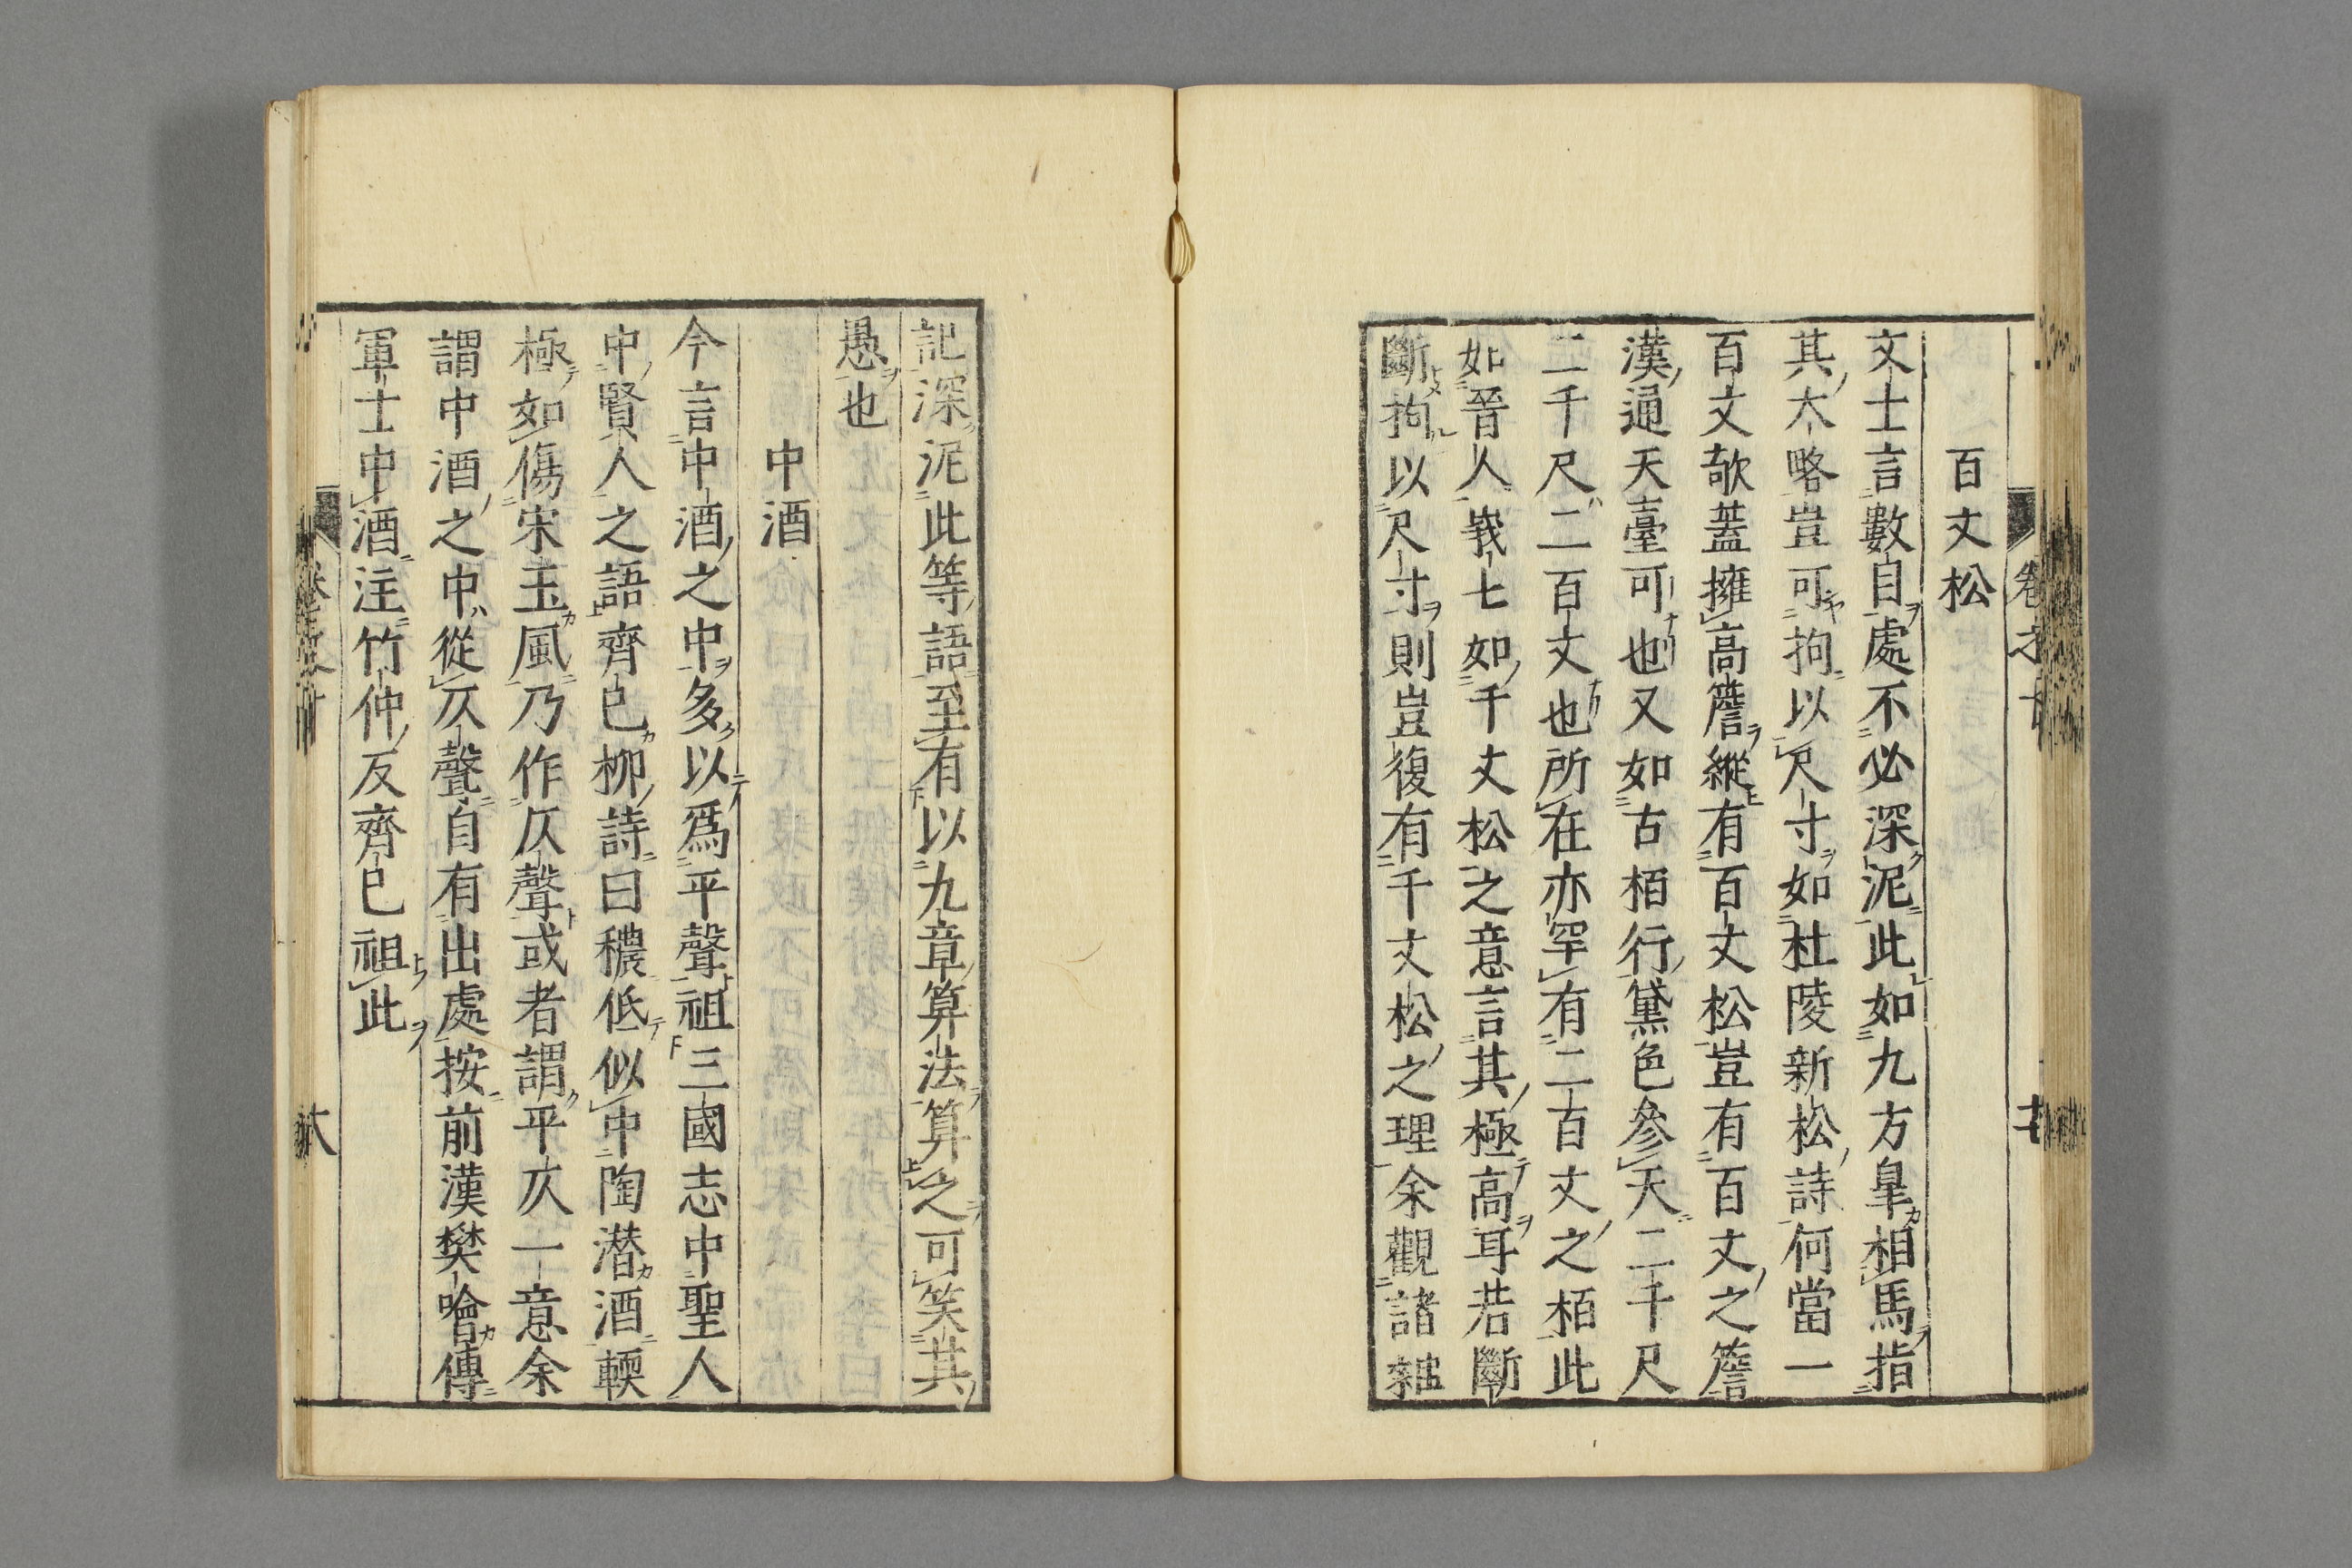 百丈松
文士言數目處不必深泥此如九方皐相馬指
其大略豈可拘以尺寸如杜陵新松詩何當一
百丈欹蓋擁高簷縱有百丈松豈有百丈之簷
漢通天臺可也又如古栢行黛色參天二千尺
二千尺二百丈也所在亦罕有二百丈之栢此
如晉人峩七如千丈松之意言其極高耳若斷
斷拘以尺寸則豈復有千丈松之理余觀諸雜
記深泥此等語至有以九章算法算之可笑其
愚也
中酒
今言中酒之中多以爲平聲祖三國志中聖人
中賢人之語齊已柳詩曰穠低似中陶潜酒輭
極如傷宋玉風乃作仄聲或者謂平仄一意余
謂中酒之中從仄聲自有出處按前漢樊噲傳
軍士中酒注竹仲反齊已祖此